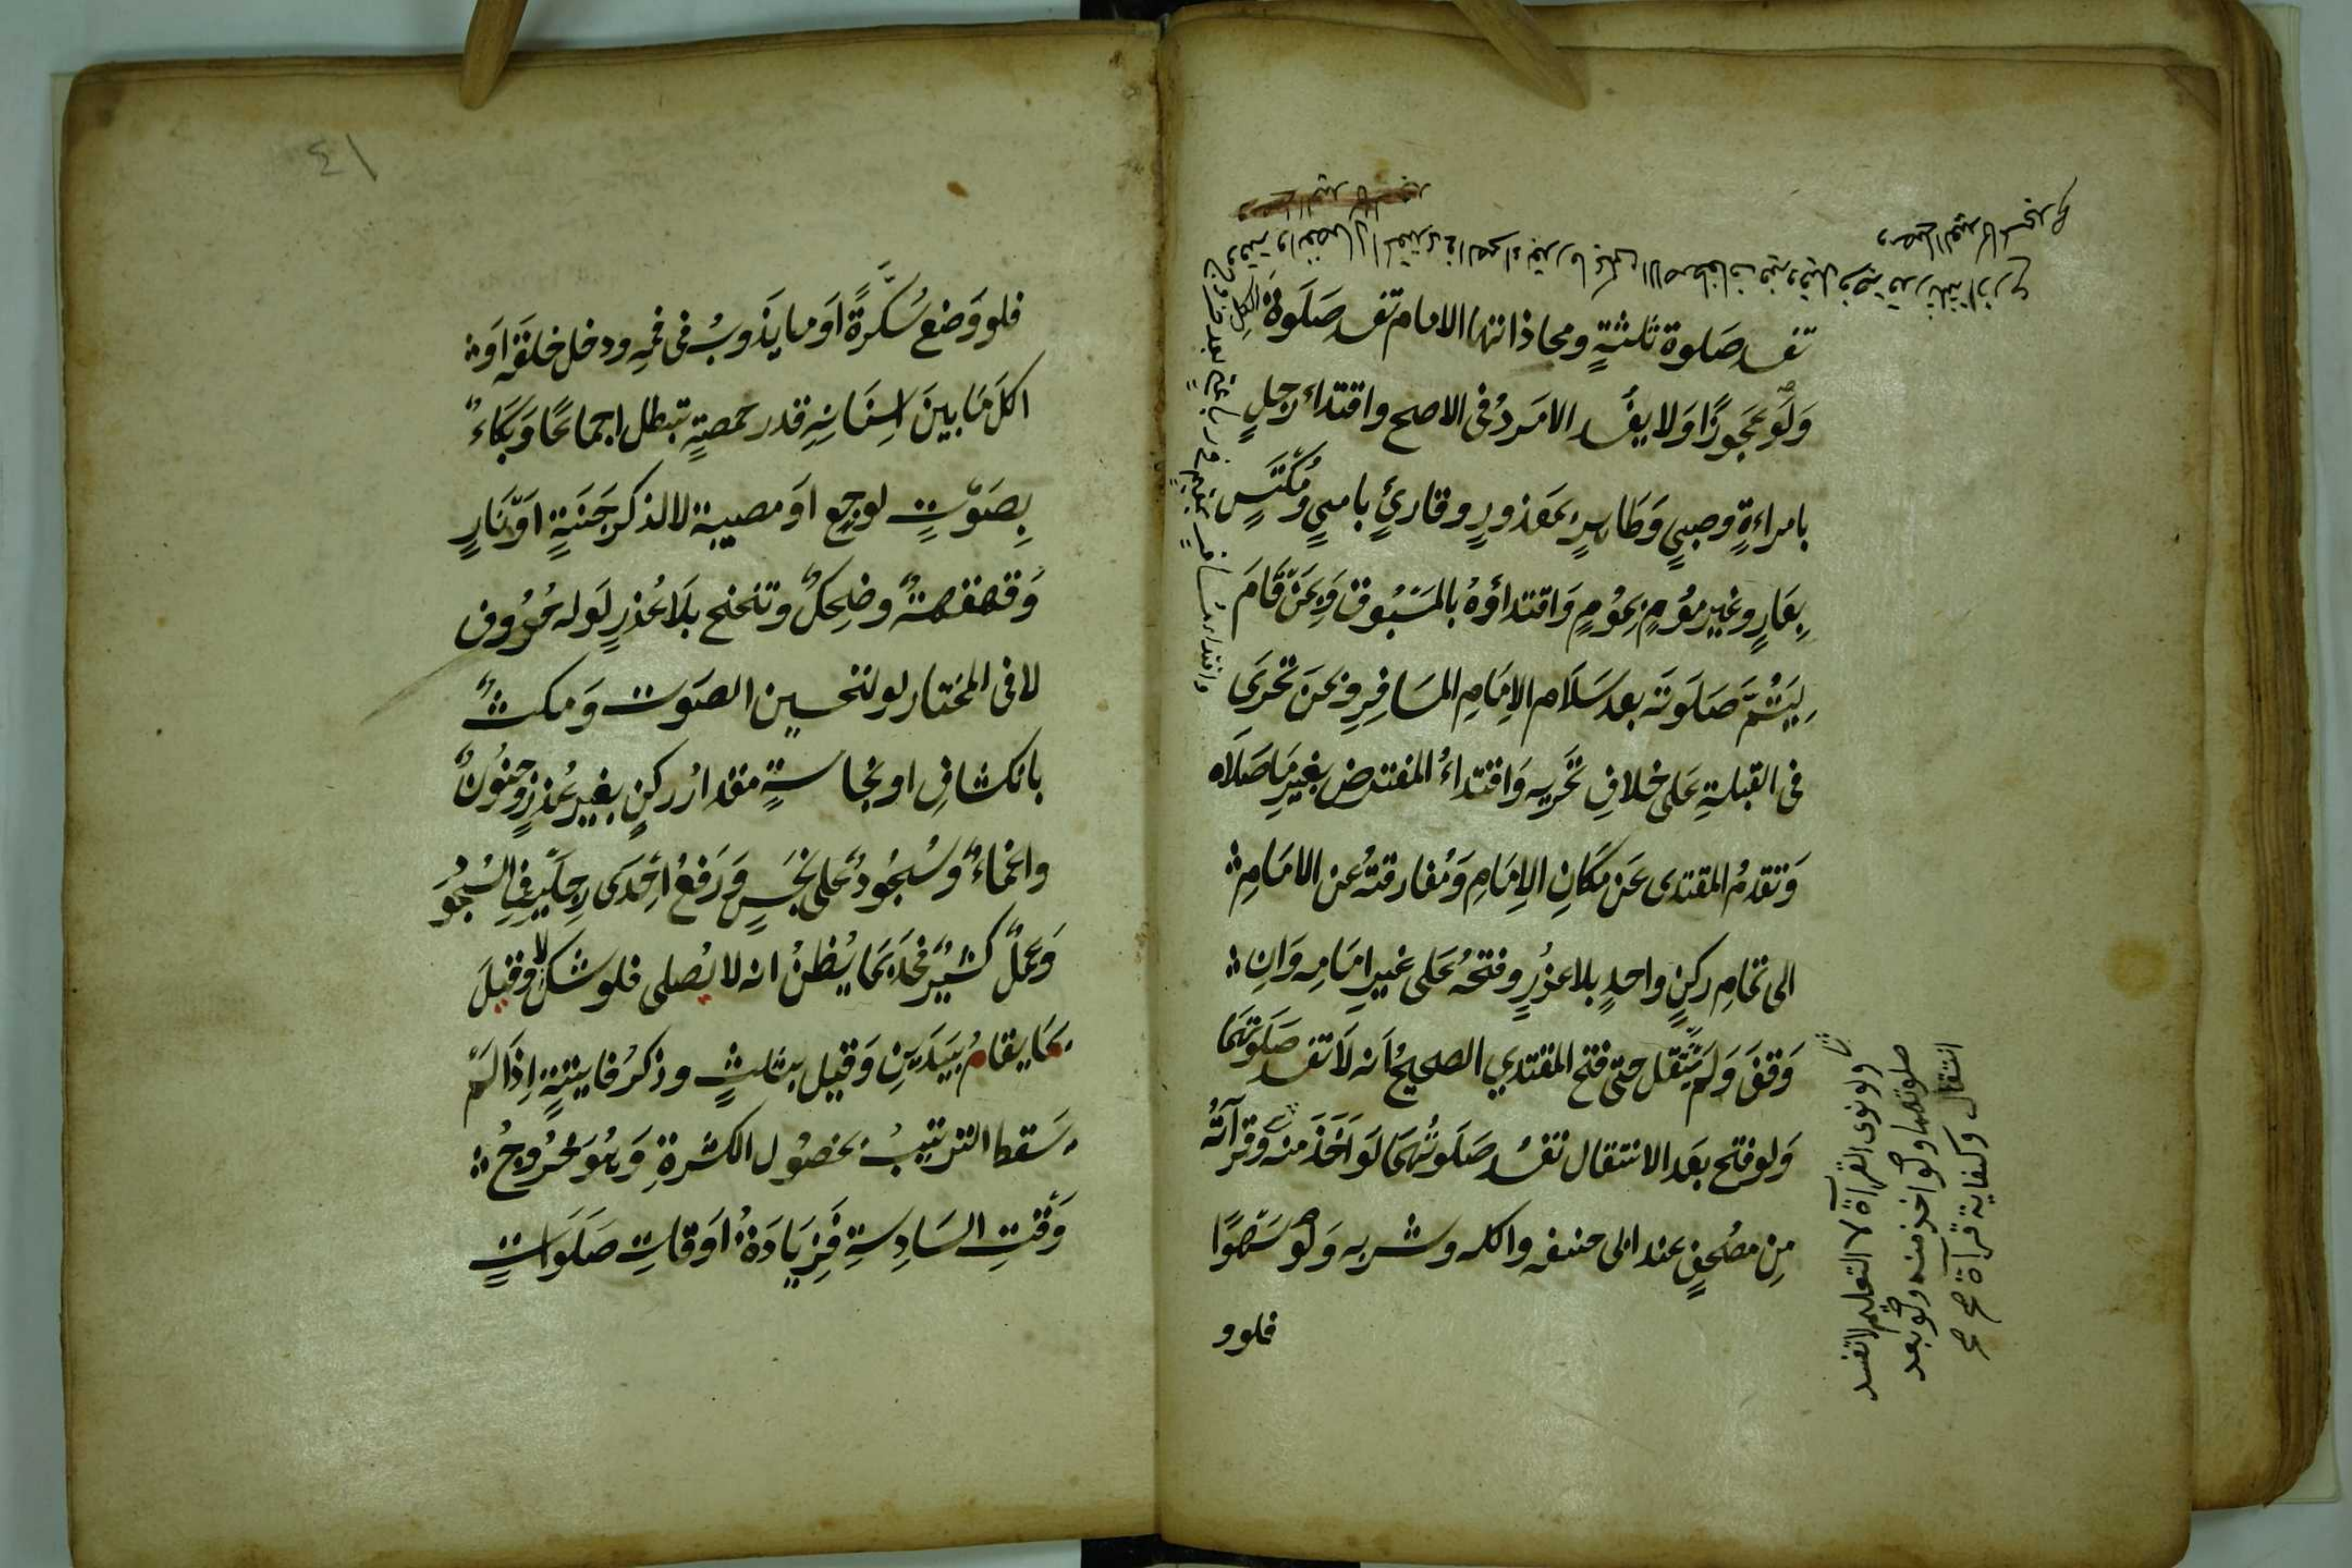 تفسد صلوة ثلثةٍ ومحاذاتها الامام تفسد صلَوة الكل
وَلَو عَجوزًا وَلا يفسُد الامَردُ فى الاصح واقتداء رجلٍ
بامراءةٍ وصبىٍ وَطَاهرٍ بمَعذورٍ وقارئٍ بامىٍ ومُكتَسٍ
بِعَارٍ وغيرِ مؤمٍ بِمؤمٍ وَاقتداؤهُ بالمَسْبُوق وَبِمَنْ قَامَ
لِيَتُمَّ صَلَوتَه بعد سَلَام الاِمَامِ المسَافِرِ وبمَن تحرىَ
فى القبلةِ عَلى خلافِ تحريه وَاقتداءُ المفترض بغيرِ مَا صَلَاه
وَتقدمُ المقتدى عَن مَكَانِ الاِمَامِ وَمُفارقتهُ عَن الامَامِ
الى تمَامِ ركنٍ واحدٍ بلا عذرٍ وفتحُه عَلى غيرِ امَامِه وَانِ
وَقفَ وَلَم ينتقل حتى فتح المقتدي الصحيحُ اَنه لَا تفسد صَلَوتهمَا
وَلو فتح بعَد الانتقال تفسُد صَلَوتُهمَا لَو اَخَذَ منه وقرآتُه
مِن مصُحفٍ عند ابى حنيفه واكله وشربه وَلَو سَهوًا
فلو و
ولو نوى القرآة لا التعليم لا تفسد
صلوتهما ولو اخذ منه ولو بعد
انتقال وكفاية قرآة صح صح
٤١
فلو وَضع سُكّرةً اَو مَا يذَوبُ فى فمِه ودخل حلقَه اَو
اكلَ مَا بينَ اسِنَانِهِ قدر حمصةٍ تبطل اجماعًا وَبَكاءٌ
بِصَوتٍ لوجعٍ اوَ مصيبة لا لذكر جَنةٍ اوَ نَارٍ
وَقهقهةٌ وضِحِكٌ وتنحنح بلَا عُذرٍ لَو له حُرُوف
لا فى المختار لو لتحسين الصَوت وَمكثٌ
بانكشافٍ او نجاسةٍ مقدارُ ركنٍ بغيرِ عُذرٍ وَجنونٌ
واغماءٌ وَسُجُودٌ عَلى نجَسٍ وَرَفعُ احَدىَ رِجلَيه فى السُجُوُد
وَعملٌ كثيرٌ فحدّ بمَا يُظنُ انه لا يُصلى فلو شكَ لا وقيلَ
بمَا يقامُ بيَدَينِ وَقيل بثلثٍ وذكرُ فايتةٍ اِذَا لمَ
سَقط الترتيبُ بحصُول الكثرةِ وَهُوَ خُروجُ
وَقتِ السَادِسةِ فَزِيَادَةُ اوَقاتِ صَلَوَاتٍ